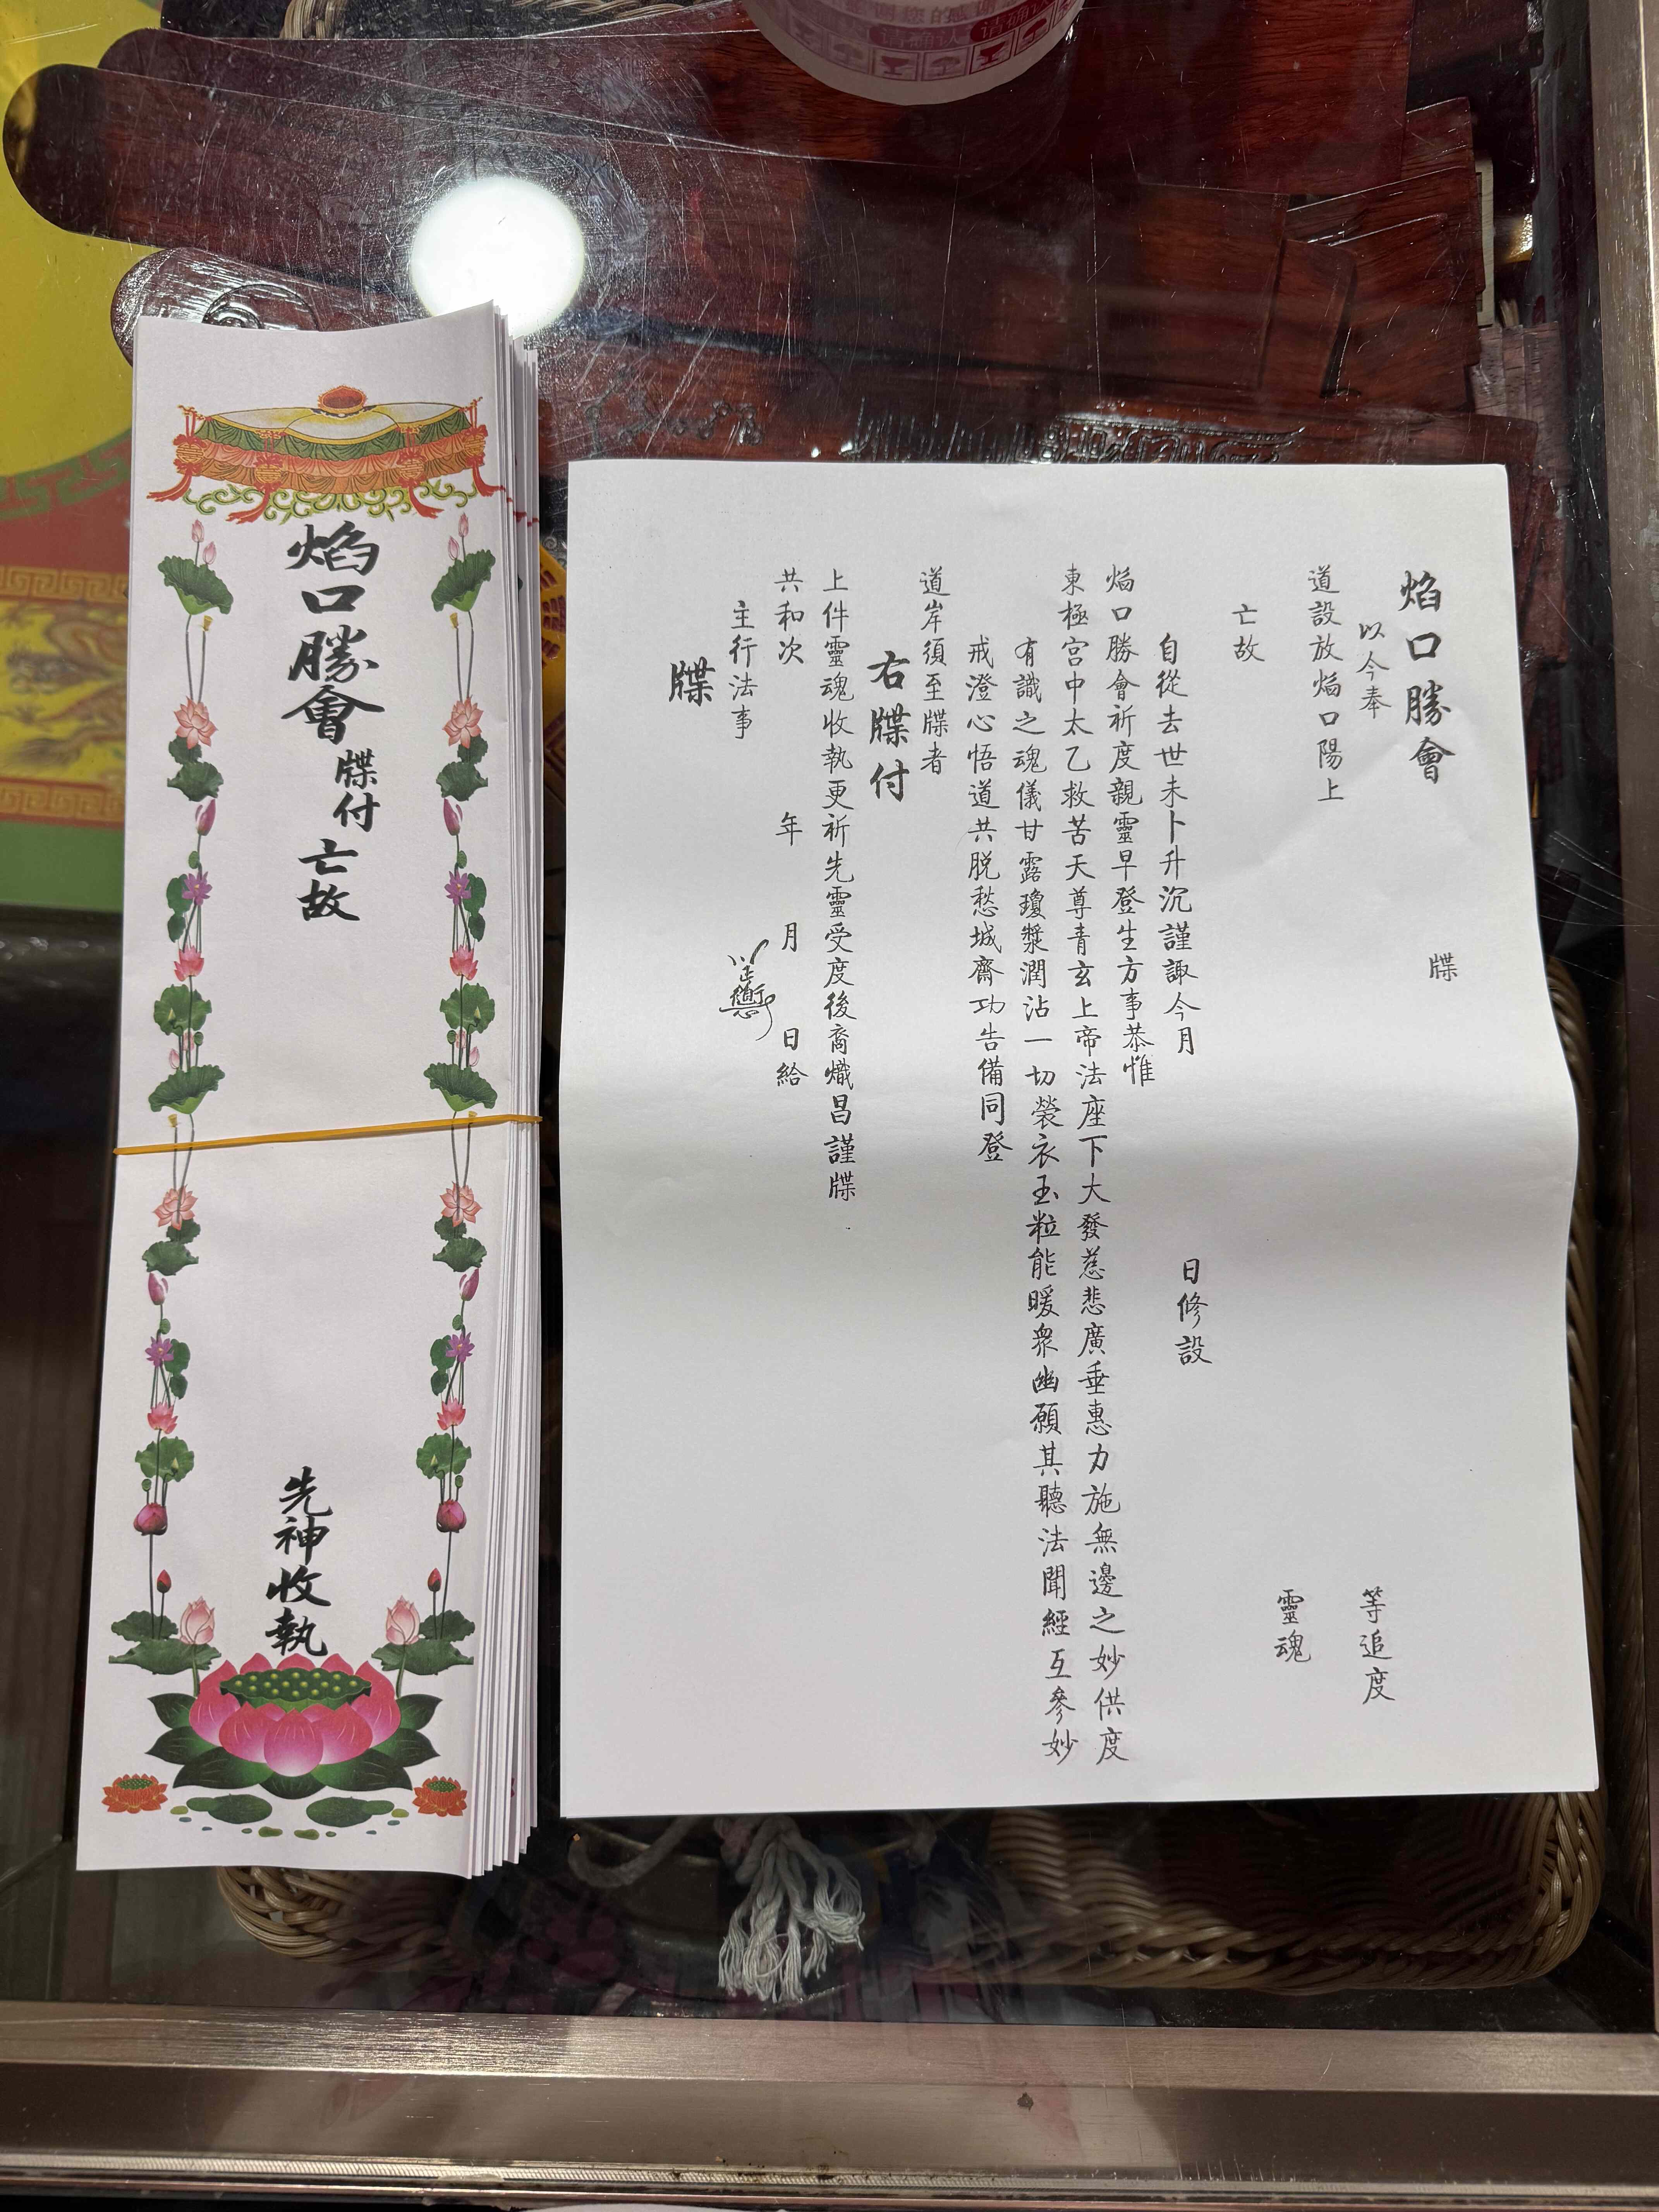 请确认
请确认
焰口勝會 牒付 亡故 先神收執
焰口勝會 牒
以今奉
道設放焰口陽上 等追度
亡故 靈魂
自從去世未卜升沉謹諏今月 日修設
焰口勝會祈度親靈早登生方事恭惟
東極宮中太乙救苦天尊青玄上帝法座下大發慈悲廣垂惠力施無邊之妙供度
有識之魂儀甘露瓊漿潤沾一切裳衣玉粒能暖衆幽願其聽法聞經互參妙
戒澄心悟道共脫愁城齋功告備同登
道岸須至牒者
右牒付
上件靈魂收執更祈先靈受度後裔熾昌謹牒
共和次 年 月 日給
主行法事
牒